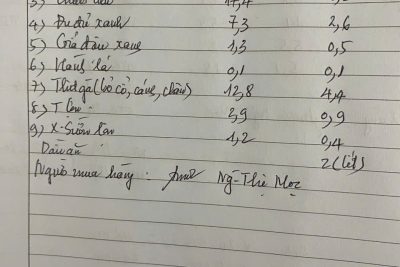 4) Đu đủ xanh 7,3 2,6
5) Giá đậu xanh 1,3 0,5
6) Hành lá 0,1 0,1
7) Thịt gà (bỏ cổ, cánh, chân) 12,8 4,4
8) T 3,9 0,9
9) X-Sườn 1,2 0,4
Dầu ăn 2 (lít)
Người mua hàng : Ng-Thị Mọc